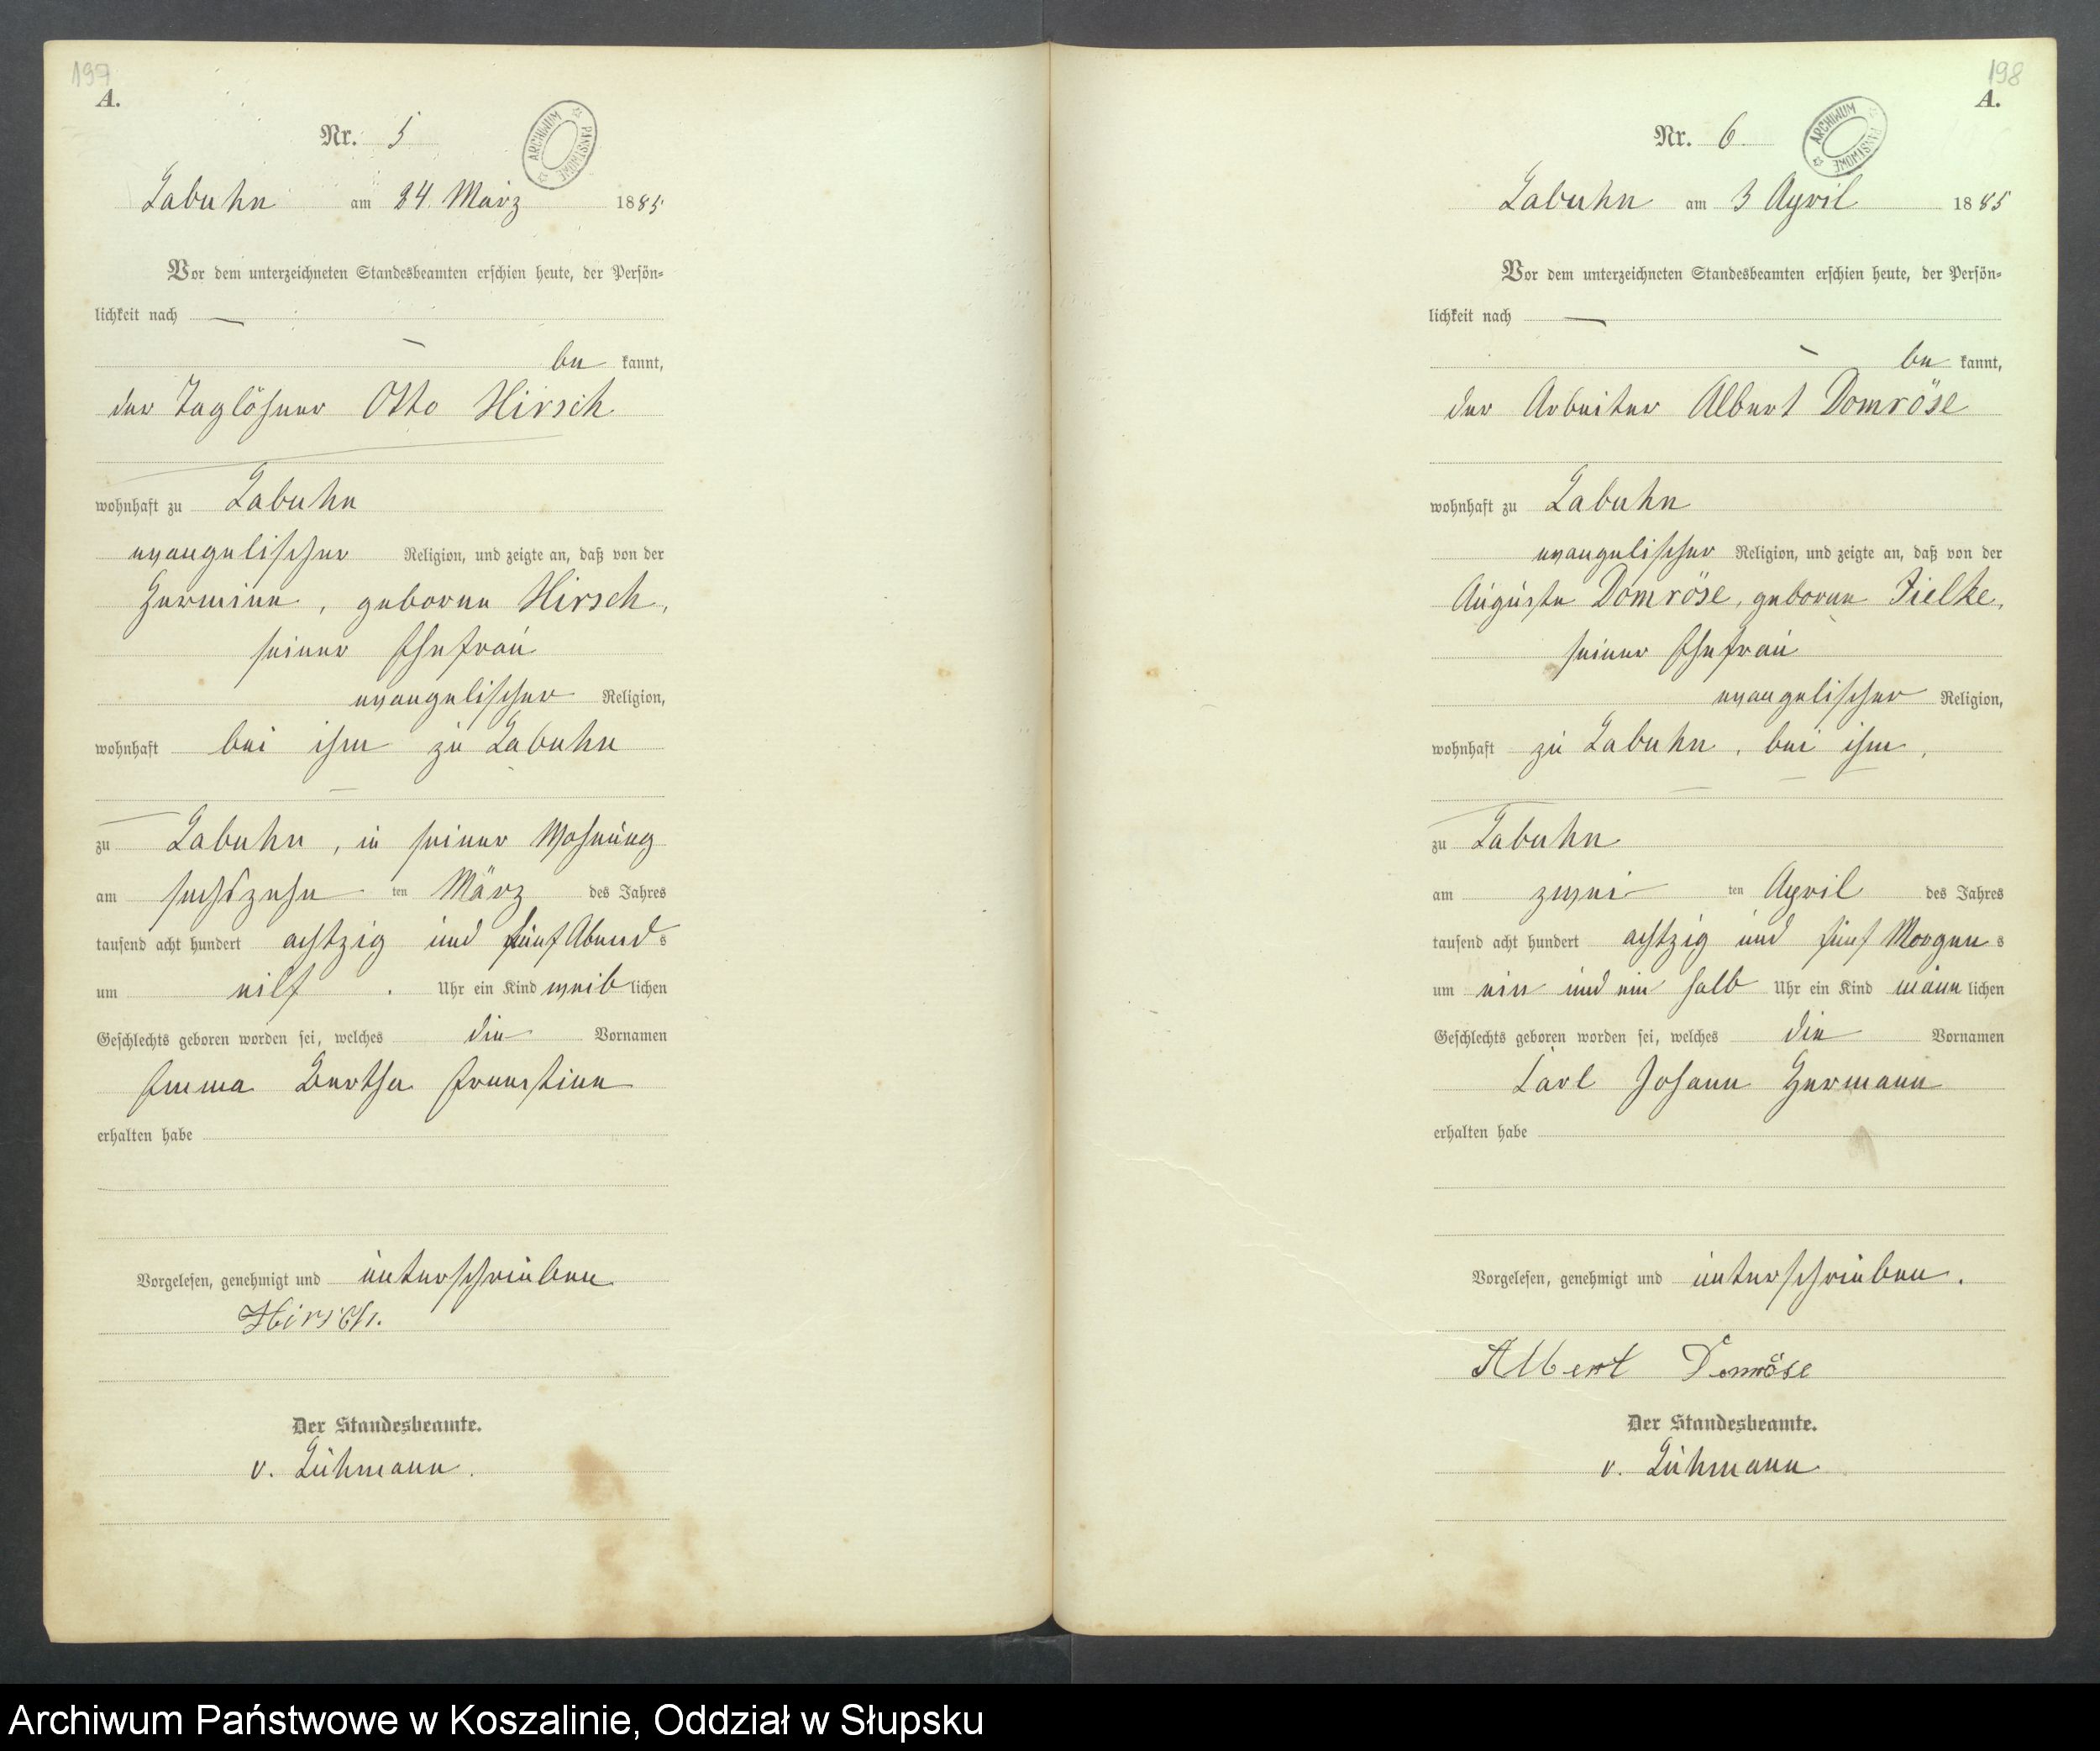 197
A.
Nr. 5
ARCHIWUM PAŃSTWOWE
Labuhn am 24. März 1885
Vor dem unterzeichneten Standesbeamten erschien heute, der Persön-
lichkeit nach —
— be kannt,
der Taglöhner Otto Hirsch
wohnhaft zu Labuhn
evangelischer Religion, und zeigte an, daß von der
Hermine, geborne Hirsch,
seiner Ehefrau
evangelischer Religion,
wohnhaft bei ihm zu Labuhn
zu Labuhn, in seiner Wohnung
am sechszehn ten März des Jahres
tausend acht hundert achtzig und fünf Abend s
um eilf Uhr ein Kind weib lichen
Geschlechts geboren worden sei, welches die Vornamen
Emma Bertha Ernestine
erhalten habe
Vorgelesen, genehmigt und unterschrieben
Hirsch.
Der Standesbeamte.
v. Lühmann.
198
A.
Nr. 6.
ARCHIWUM PAŃSTWOWE
Labuhn am 3 April 1885
Vor dem unterzeichneten Standesbeamten erschien heute, der Persön-
lichkeit nach —
— be kannt,
der Arbeiter Albert Domröse
wohnhaft zu Labuhn
evangelischer Religion, und zeigte an, daß von der
Auguste Domröse, geborne Fielke,
seiner Ehefrau
evangelischer Religion,
wohnhaft zu Labuhn, bei ihm,
zu Labuhn
am zwei ten April des Jahres
tausend acht hundert achtzig und fünf Morgen s
um ein und ein halb Uhr ein Kind männ lichen
Geschlechts geboren worden sei, welches die Vornamen
Carl Johann Hermann
erhalten habe
Vorgelesen, genehmigt und unterschrieben.
Albert Domröse
Der Standesbeamte.
v. Lühmann
Archiwum Państwowe w Koszalinie, Oddział w Słupsku